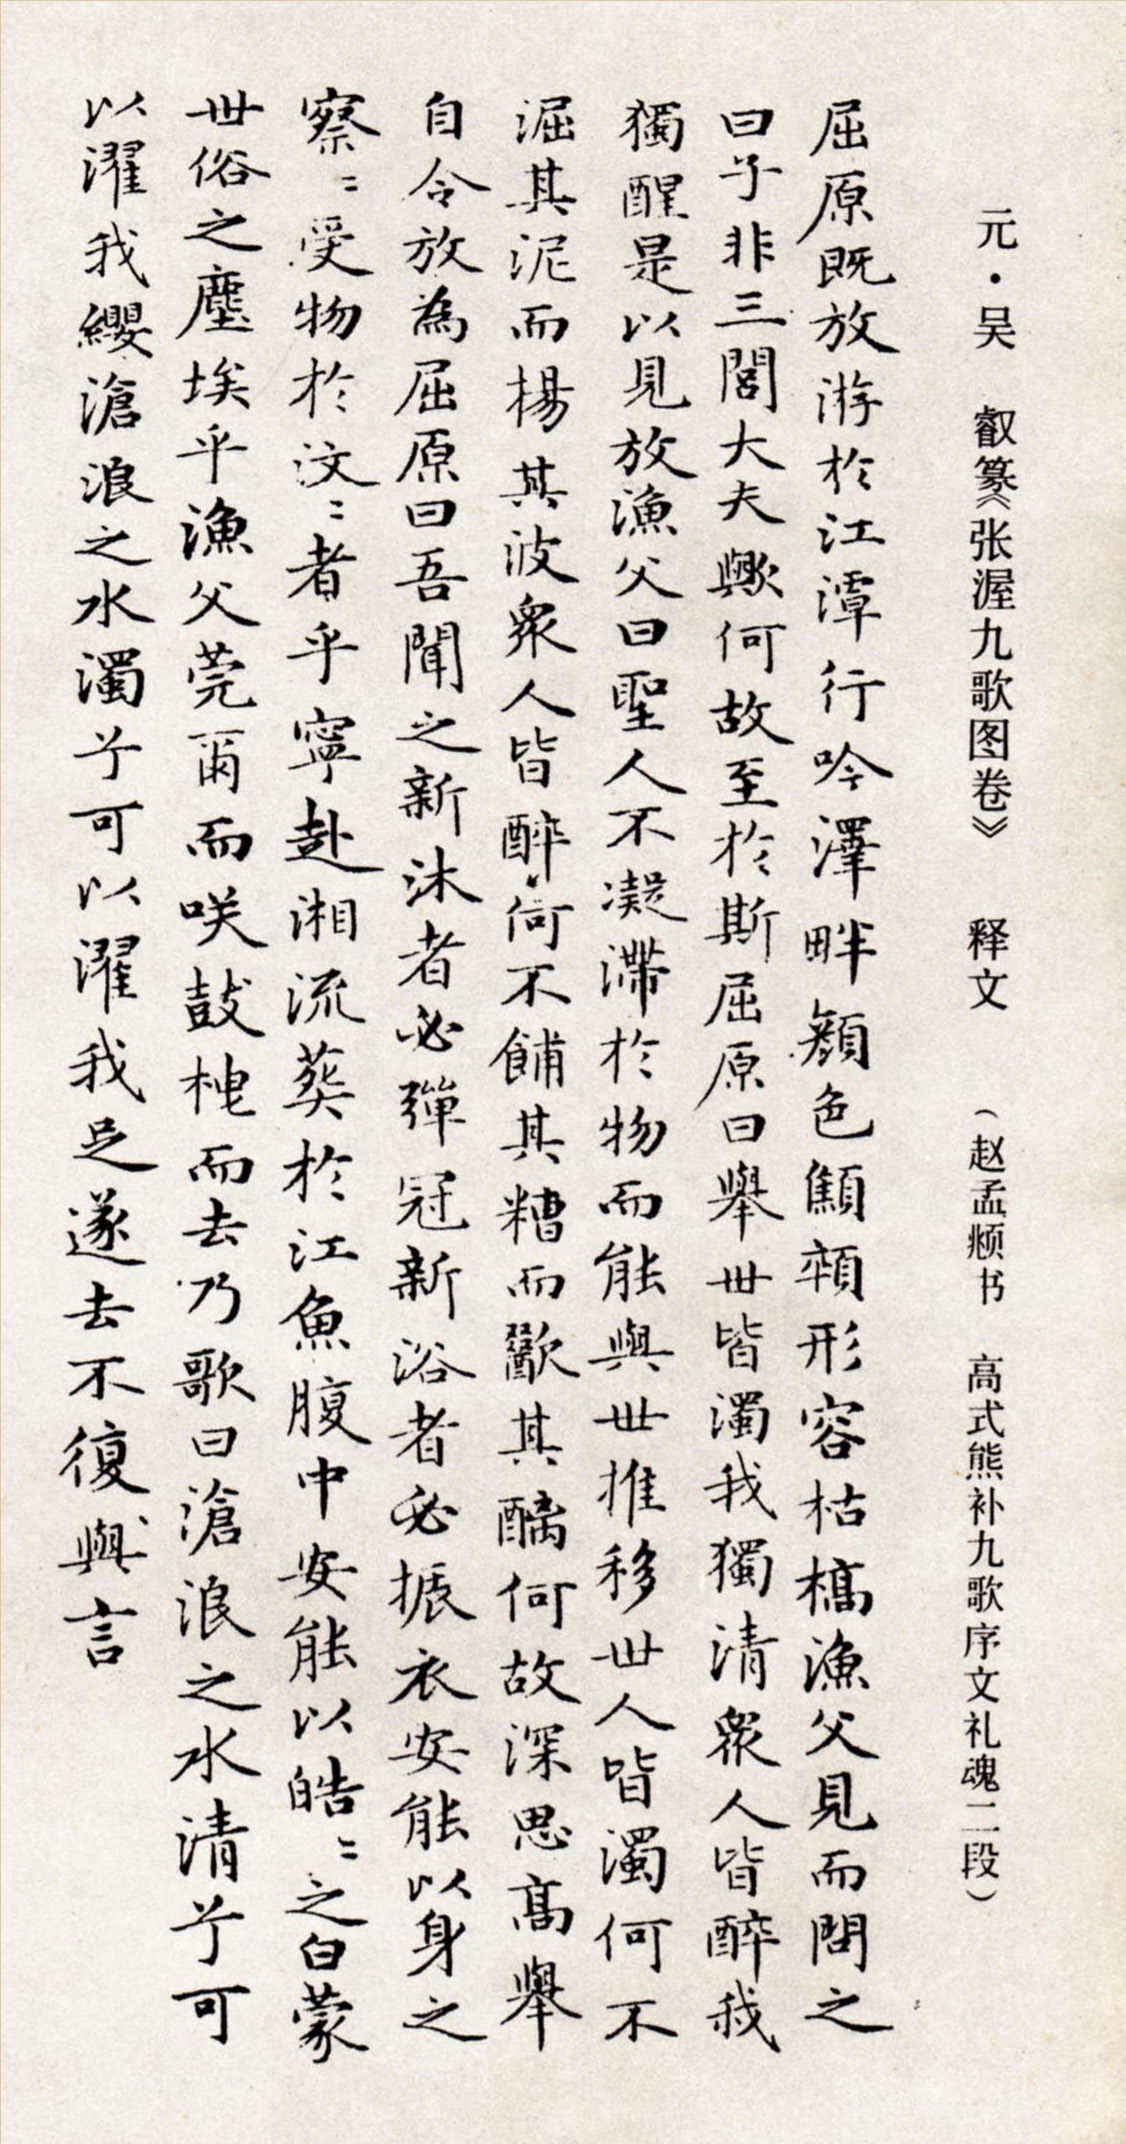 元·吴 叡篆《张渥九歌图卷》 释文 （赵孟頫书 高式熊补九歌序文礼魂二段）
屈原既放游於江潭行吟澤畔顏色顦顇形容枯槁漁父見而問之
曰子非三閭大夫歟何故至於斯屈原曰舉世皆濁我獨清衆人皆醉我
獨醒是以見放漁父曰聖人不凝滯於物而能與世推移世人皆濁何不
淈其泥而楊其波衆人皆醉何不餔其糟而歠其醨何故深思高舉
自令放為屈原曰吾聞之新沐者必彈冠新浴者必振衣安能以身之
察〻受物於汶〻者乎寧赴湘流葬於江魚腹中安能以皓〻之白蒙
世俗之塵埃乎漁父莞爾而咲鼓枻而去乃歌曰滄浪之水清兮可
以濯我纓滄浪之水濁兮可以濯我足遂去不復與言